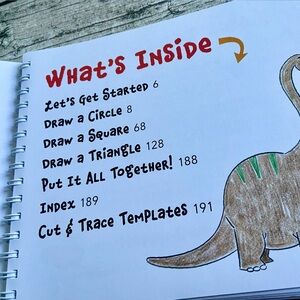 What's Inside
Let's Get Started 6
Draw a Circle 8
Draw a Square 68
Draw a Triangle 128
Put It All Together! 188
Index 189
Cut & Trace Templates 191